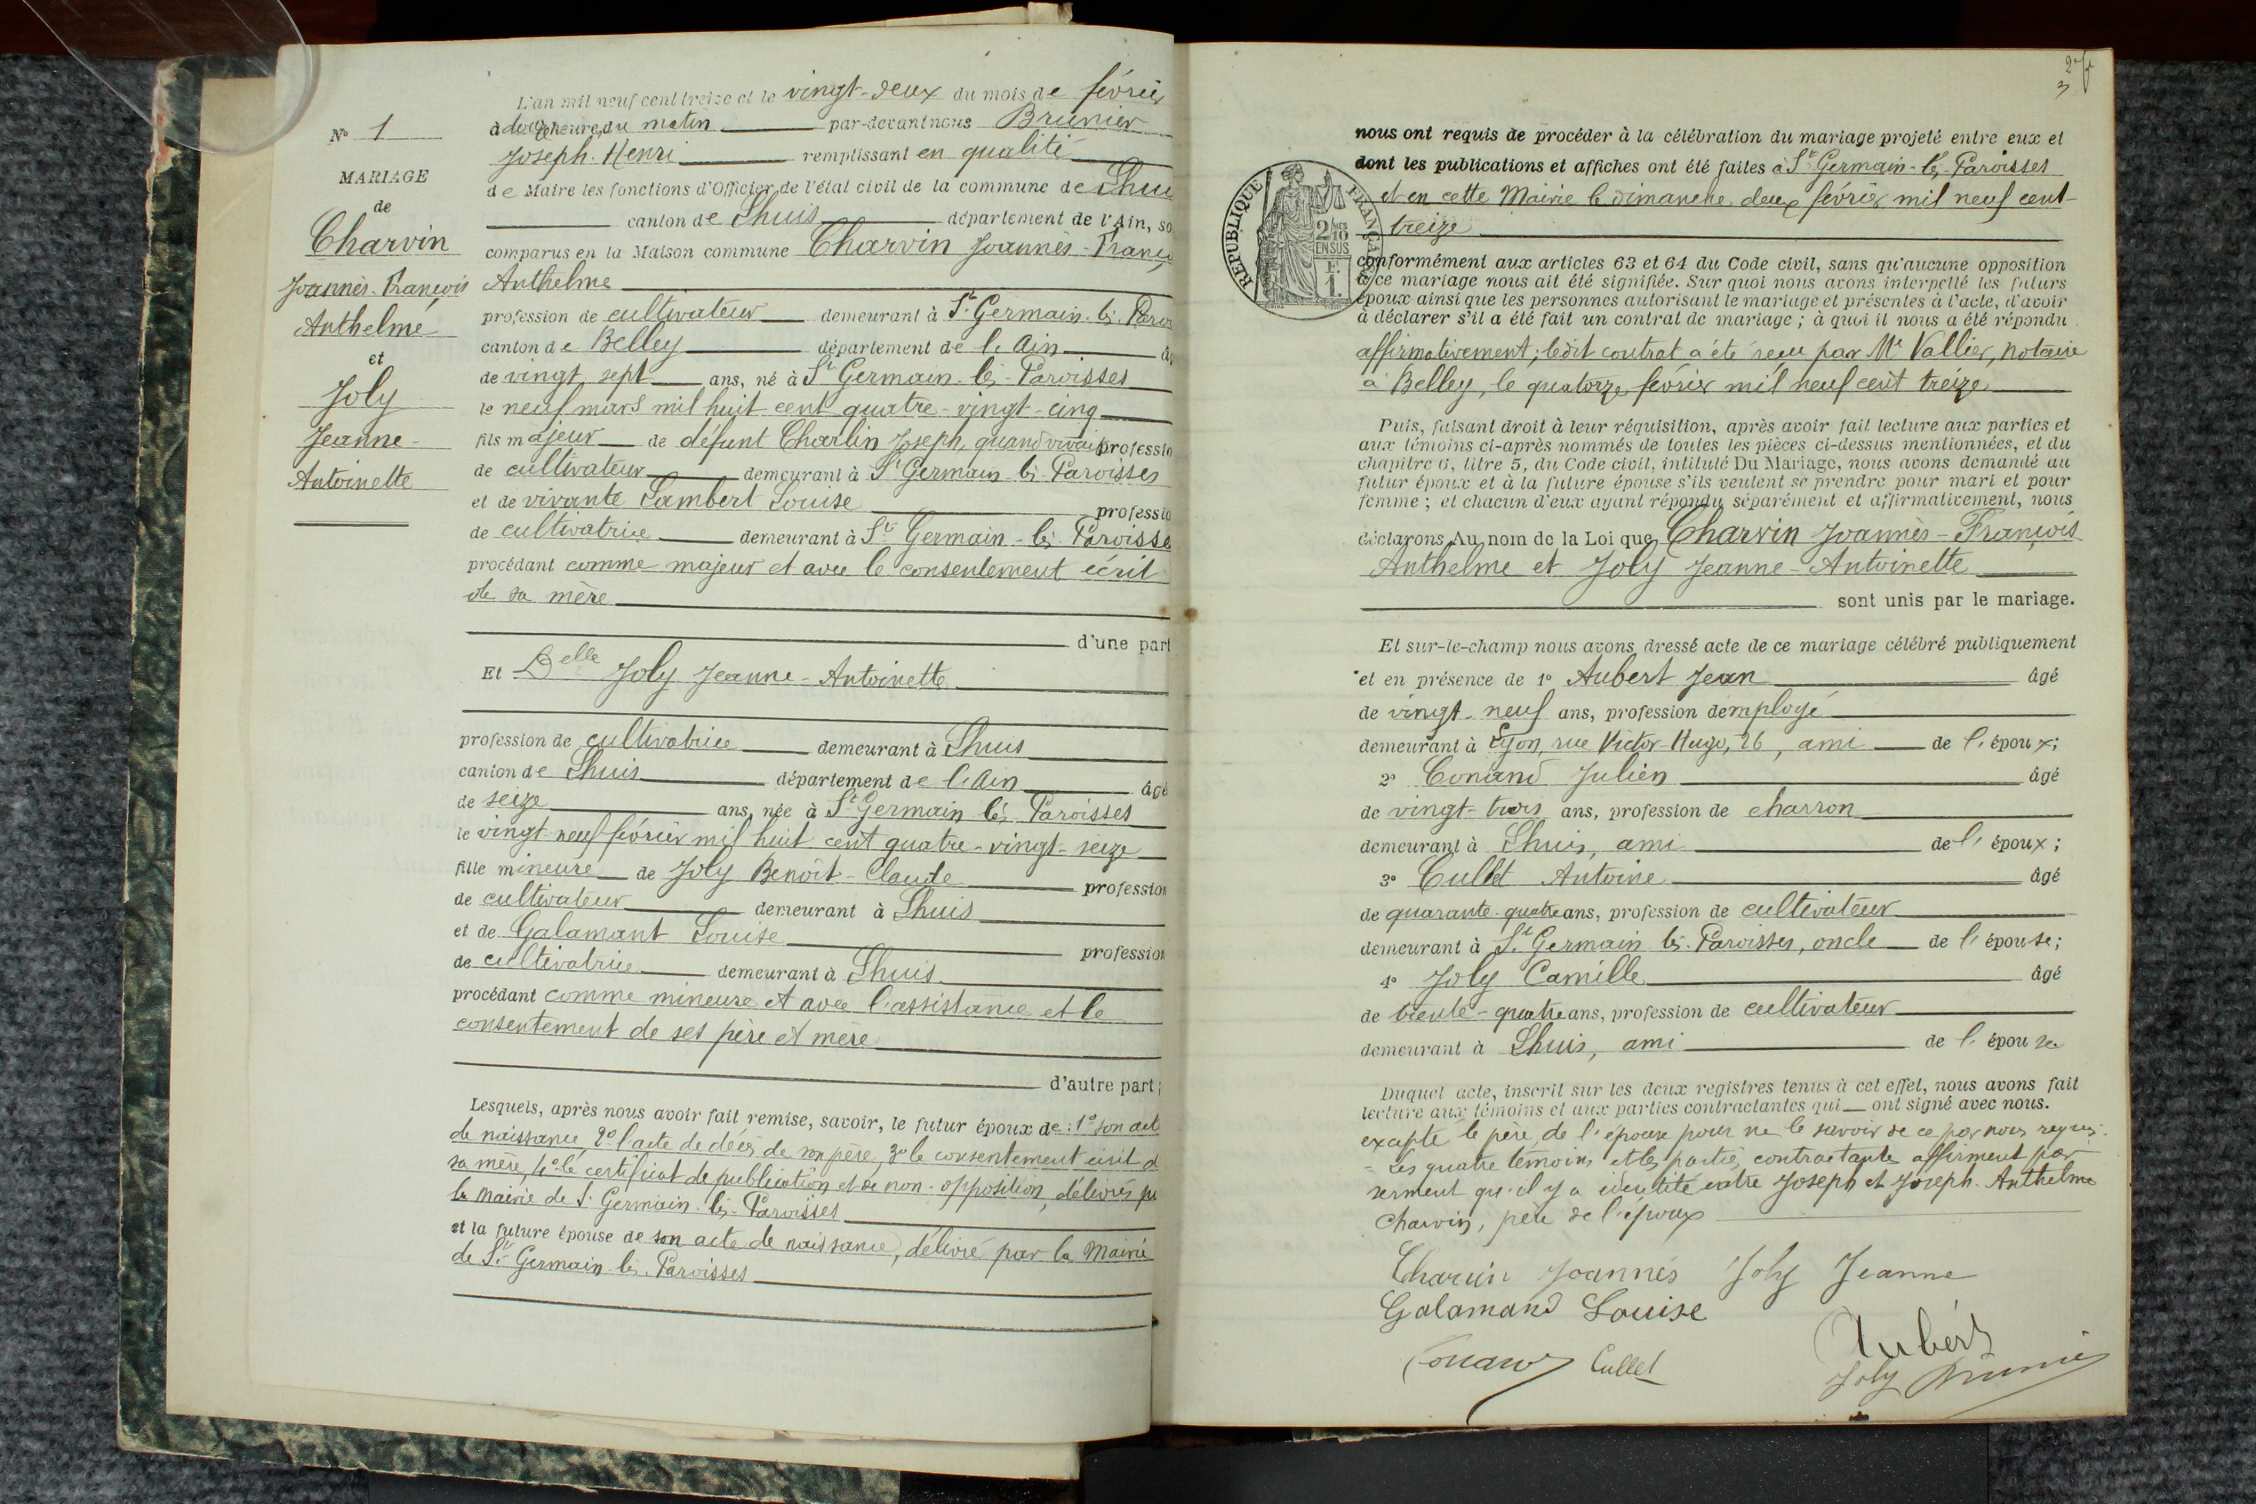 N° 1
MARIAGE
de
Charvin
Joannès-François
Anthelme
et
Joly
Jeanne-
Antoinette
L'an mil neuf cent treize et le vingt-deux du mois de février
heure du matin par-devant nous Brunier
Joseph-Henri remplissant en qualité
de Maire les fonctions d'Officier de l'état civil de la commune de Lhuis
canton de Lhuis département de l'Ain, so
comparus en la Maison commune Charvin Joannès-Franç
Anthelme
profession de cultivateur demeurant à St Germain-les-Paroi
canton de Belley département de l'Ain âg
de vingt sept ans, né à St Germain-les-Paroisses
le neuf mars mil huit cent quatre-vingt-cinq
fils majeur de défunt Charlin Joseph, quand vivait professio
de cultivateur demeurant à St Germain-les-Paroisses
et de vivante Lambert Louise professio
de cultivatrice demeurant à St Germain-les-Paroisse
procédant comme majeur et avec le consentement écrit
de sa mère
d'une part
Et Delle Joly Jeanne-Antoinette
profession de cultivatrice demeurant à Lhuis
canton de Lhuis département de l'Ain âgé
de seize ans, née à St Germain-les-Paroisses
le vingt-neuf février mil huit cent quatre-vingt-seize
fille mineure de Joly Benoit-Claude profession
de cultivateur demeurant à Lhuis
et de Galamant Louise profession
de cultivatrice demeurant à Lhuis
procédant comme mineure et avec l'assistance et le
consentement de ses père et mère
d'autre part;
Lesquels, après nous avoir fait remise, savoir, le futur époux de : 1° son act
de naissance, 2° l'acte de décès de son père, 3° le consentement écrit d
sa mère, 4° le certificat de publication et de non-opposition, délivrés pa
la Mairie de St Germain-les-Paroisses
et la future épouse de son acte de naissance, délivré par la Mairie
de St Germain-les-Paroisses
2
3
nous ont requis de procéder à la célébration du mariage projeté entre eux et
dont les publications et affiches ont été faites à St Germain-les-Paroisses
et en cette Mairie le dimanche deux février mil neuf cent-
treize
RÉPUBLIQUE FRANÇAISE
2/10
EN SUS
F.
1.
conformément aux articles 63 et 64 du Code civil, sans qu'aucune opposition
à ce mariage nous ait été signifiée. Sur quoi nous avons interpellé les futurs
époux ainsi que les personnes autorisant le mariage et présentes à l'acte, d'avoir
à déclarer s'il a été fait un contrat de mariage ; à quoi il nous a été répondu
affirmativement; ledit contrat a été reçu par Me Vallier, notaire
à Belley, le quatorze février mil neuf cent treize
Puis, faisant droit à leur réquisition, après avoir fait lecture aux parties et
aux témoins ci-après nommés de toutes les pièces ci-dessus mentionnées, et du
chapitre 6, titre 5, du Code civil, intitulé Du Mariage, nous avons demandé au
futur époux et à la future épouse s'ils veulent se prendre pour mari et pour
femme ; et chacun d'eux ayant répondu séparément et affirmativement, nous
déclarons Au nom de la Loi que Charvin Joannès-François
Anthelme et Joly Jeanne-Antoinette
sont unis par le mariage.
Et sur-le-champ nous avons dressé acte de ce mariage célébré publiquement
et en présence de 1° Aubert Jean âgé
de vingt-neuf ans, profession d'employé
demeurant à Lyon, rue Victor-Hugo, 26, ami de l'époux;
2° Conand Julien âgé
de vingt-trois ans, profession de charron
demeurant à Lhuis, ami de l'époux;
3° Cullet Antoine âgé
de quarante-quatre ans, profession de cultivateur
demeurant à St Germain-les-Paroisses, oncle de l'épouse;
4° Joly Camille âgé
de trente-quatre ans, profession de cultivateur
demeurant à Lhuis, ami de l'épouse
Duquel acte, inscrit sur les deux registres tenus à cet effet, nous avons fait
lecture aux témoins et aux parties contractantes qui ont signé avec nous.
excepté le père de l'épouse pour ne le savoir de ce par nous requis.
Les quatre témoins et les parties contractantes affirment par
serment qu'il y a identité entre Joseph et Joseph-Anthelme
Charvin, père de l'époux
Charvin Joannès Joly Jeanne
Galamand Louise
Aubert
Conand Cullet
Joly Brunier